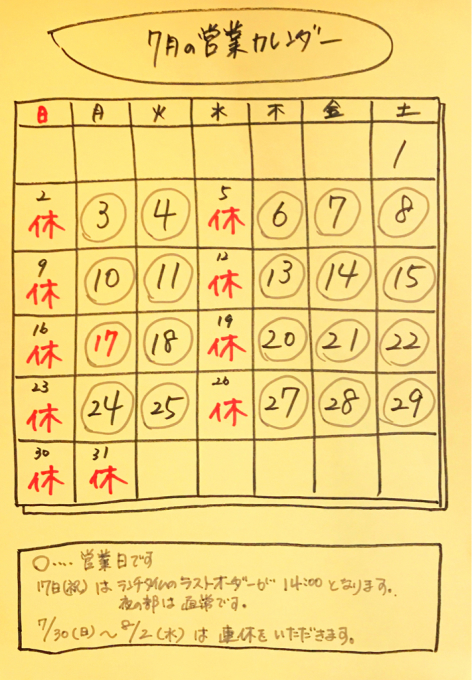 7月の営業カレンダー
日 月 火 水 木 金 土
1
2 休 3 4 5 休 6 7 8
9 休 10 11 12 休 13 14 15
16 休 17 18 19 休 20 21 22
23 休 24 25 26 休 27 28 29
30 休 31 休
○・・・・ 営業日です
17日(祝) は ランチタイムのラストオーダーが 14:00 となります。
夜の部は 通常です。
7/30(日)〜8/2(水) は 連休をいただきます。